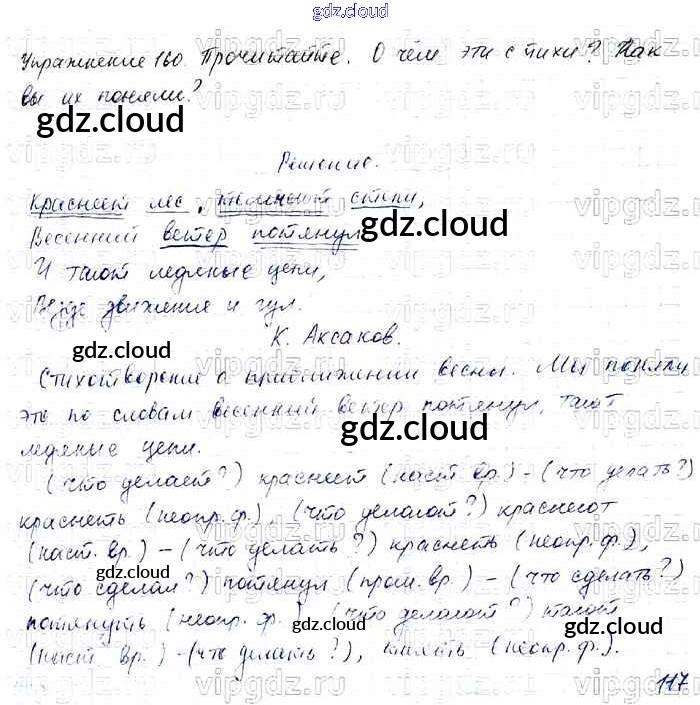 gdz.cloud
Упражнение 160. Прочитайте. О чём эти стихи? Как
вы их поняли?
gdz.cloud
Решение.
Краснеет лес, темнеют степи,
Весенний ветер потянул
gdz.cloud
И тают ледяные цепи,
Везде движение и гул.
К. Аксаков.
gdz.cloud
Стихотворение о приближении весны. Мы поняли
это по словам весенний ветер потянул, тают
ледяные цепи.
gdz.cloud
(что делает?) краснеет (наст. вр.) – (что делать?)
краснеть (неопр. ф.), (что делают?) краснеют
(наст. вр.) – (что делать?) краснеть (неопр. ф.),
(что сделал?) потянул (прош. вр.) – (что сделать?)
gdz.cloud
потянуть (неопр. ф.) (что делают?) тают
gdz.cloud
(наст. вр.) – (что делать?), таять (неопр. ф.).
gdz.cloud
117
vipgdz.ru